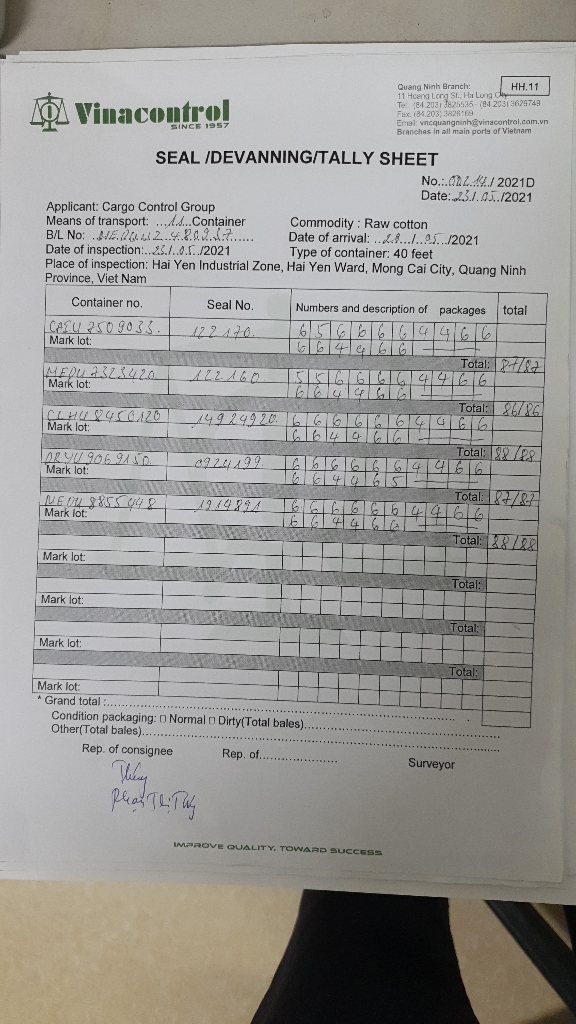 Vinacontrol
SINCE 1957
HH.11
Quang Ninh Branch:
11 Hoang Long St., Ha Long City
Tel: (84.203) 3825535 - (84.203) 3629749
Fax: (84.203) 3826169
Email: vncquangninh@vinacontrol.com.vn
Branches in all main ports of Vietnam
SEAL /DEVANNING/TALLY SHEET
No.: / 2021D
Date: 23/.05./2021
Applicant: Cargo Control Group
Means of transport: ...11...Container
Commodity : Raw cotton
B/L No:
Date of arrival: /.05../2021
Date of inspection: 23/.05../2021
Type of container: 40 feet
Place of inspection: Hai Yen Industrial Zone, Hai Yen Ward, Mong Cai City, Quang Ninh
Province, Viet Nam
Container no. Seal No. Numbers and description of packages total
122170. 6 5 6 6 6 6 4 4 6 6
Mark lot: 6 6 4 4 6 6
Total: 87/87
MEDU 7323420 122160 5 5 6 6 6 6 4 4 6 6
Mark lot: 6 6 4 4 6 6
Total: 86/86
14924920. 6 6 6 6 6 6 4 4 6 6
Mark lot: 6 6 4 4 6 6
Total: 88/88
DRYU 9069150. 0924199. 6 6 6 6 6 6 4 4 6 6
Mark lot: 6 6 4 4 6 5
Total: 87/87
8855448 1914891 6 6 6 6 6 6 4 4 6 6
Mark lot: 6 6 4 4 6 6
Total: 88/88
Mark lot:
Total:
Mark lot:
Total:
Mark lot:
Total:
Mark lot:
* Grand total :
Condition packaging: □ Normal □ Dirty(Total bales)
Other(Total bales)
Rep. of consignee Rep. of Surveyor
IMPROVE QUALITY, TOWARD SUCCESS